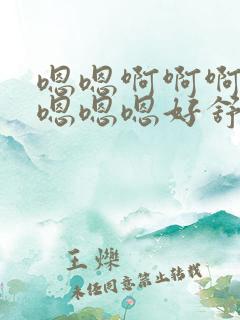 嗯嗯啊啊啊
嗯嗯嗯好舒
王爍
未经同意禁止转载